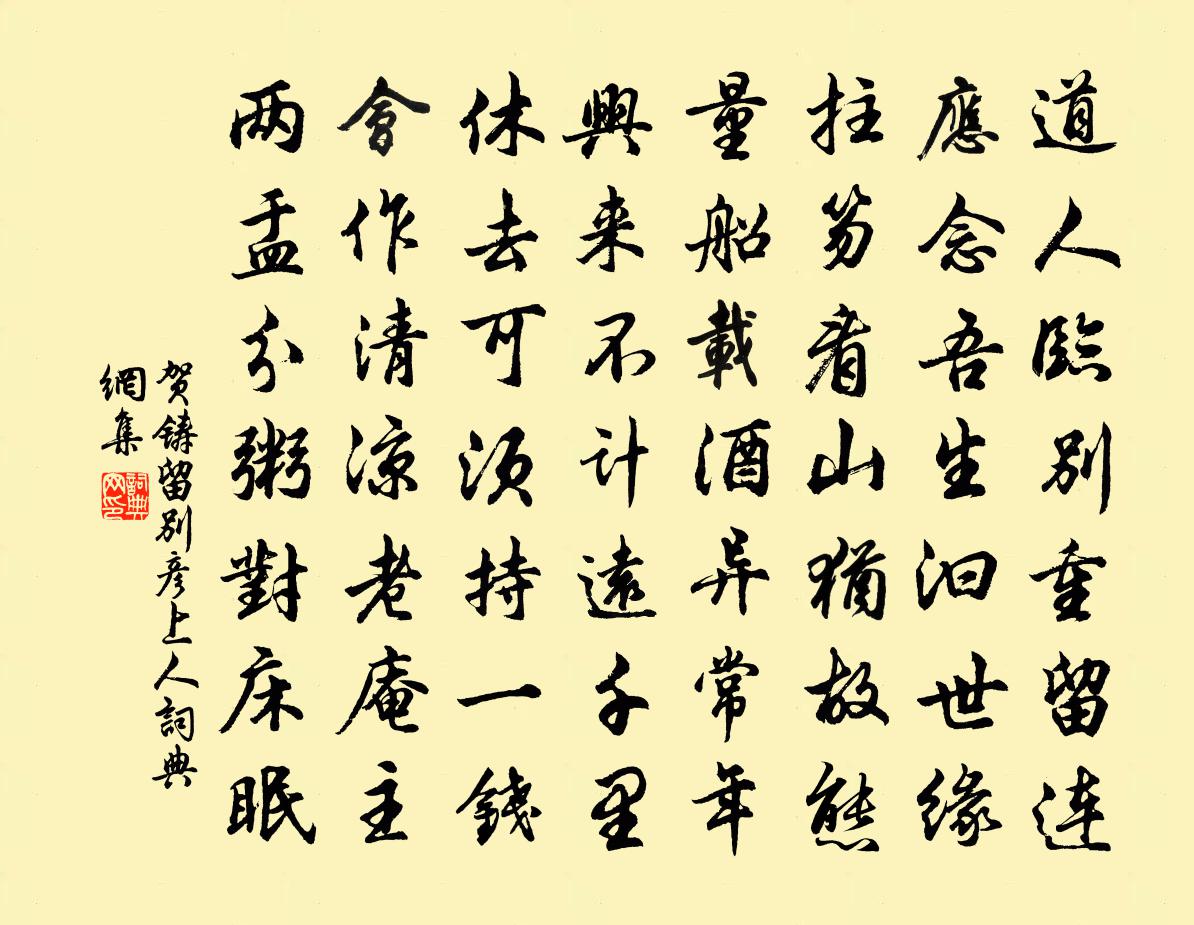 道人臨别重留连
應念吾生汩世緣
拄笏看山猶故態
量船載酒异常年
興来不計遠千里
休去可須持一錢
會作清凉老庵主
两盂分粥對床眠
贺鑄留别彦上人詞典
網集
詞典
网印